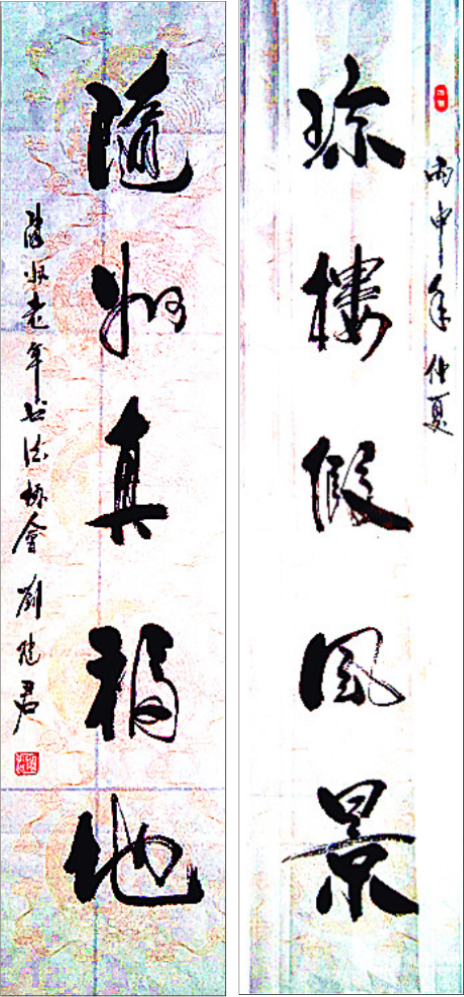 丙申年仲夏
琼楼假风景
随州真福地
随州老年书法协会 刘
君